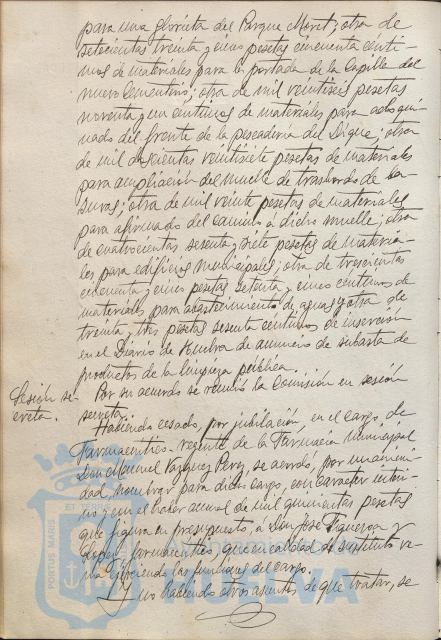 para una glorieta del Parque Moret; otra de
setecientas treinta y cinco pesetas cincuenta cénti-
mos de materiales para la portada de la Capilla del
nuevo Cementerio; otra de mil veintiseis pesetas
noventa y un centimos de materiales para adoqui-
nado del frente de la pescaderia del Dique; otra
de mil doscientas veintisiete pesetas de materiales
para ampliación del muelle de trasbordo de ba-
suras; otra de mil veinte pesetas de materiales
para afirmado del camino á dicho muelle; otra
de cuatrocientas sesenta y siete pesetas de materia-
les para edificios municipales; otra de trescientas
cincuenta y cinco pesetas setenta y cinco centimos de
materiales para abastecimiento de aguas y otra de
treinta y tres pesetas sesenta centimos de inserción
en el Diario de Huelva de anuncio de subasta de
productos de la limpieza pública.
Sesión se-
creta.
Por su acuerdo se reunió la Comisión en sesión
secreta.
Habiendo cesado, por jubilación, en el cargo de
Farmaceutico-regente de la Farmacia municipal
Don Manuel Vazquez Perez, se acordó, por unanimi-
dad, nombrar para dicho cargo, con caracter interi-
no y con el haber anual de mil quinientas pesetas
que figura en presupuesto, á Don José Figueroa y
Lopez, farmaceutico, que en calidad de sustituto ve-
nia ejerciendo las funciones del cargo.
Y no habiendo otros asuntos de que tratar, se
PORTUS MARIS
ET TERRAE
Ayuntamiento de
HUELVA